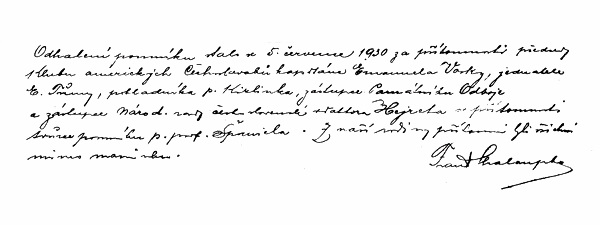 Odhalení pomníku stalo se 5. července 1930 za přítomnosti předsedy
klubu amerických Čechoslováků kapitána Emanuela Vosky, jednatele
E. Tůmy, pokladníka p. zástupce Památníku Odboje
a zástupce Národ. rady československé Hejreta a přítomnosti
tvůrce pomníku p. prof. Španiela. Z naší rodiny přítomni byli všichni
mimo
Frant. Chaloupka